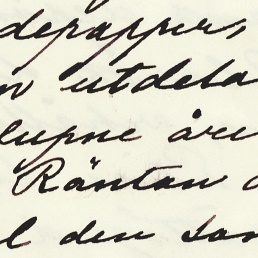 depapper,
n utdela
lupne åre
Räntan
l den sam